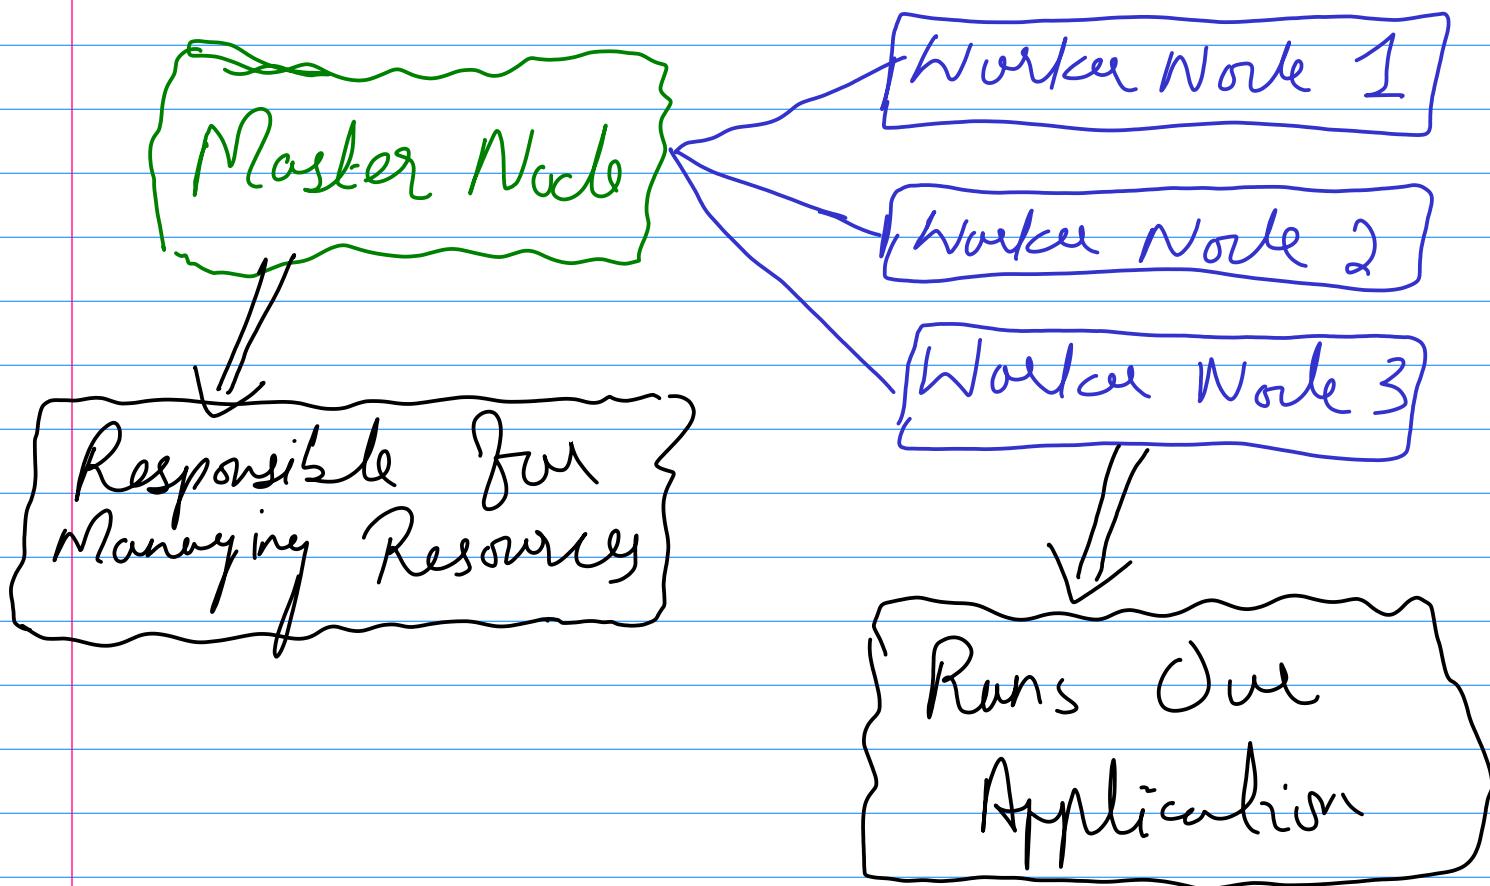 Master Node
Worker Node 1
Worker Node 2
Worker Node 3
Responsible for
Managing Resources
Runs Our
Application